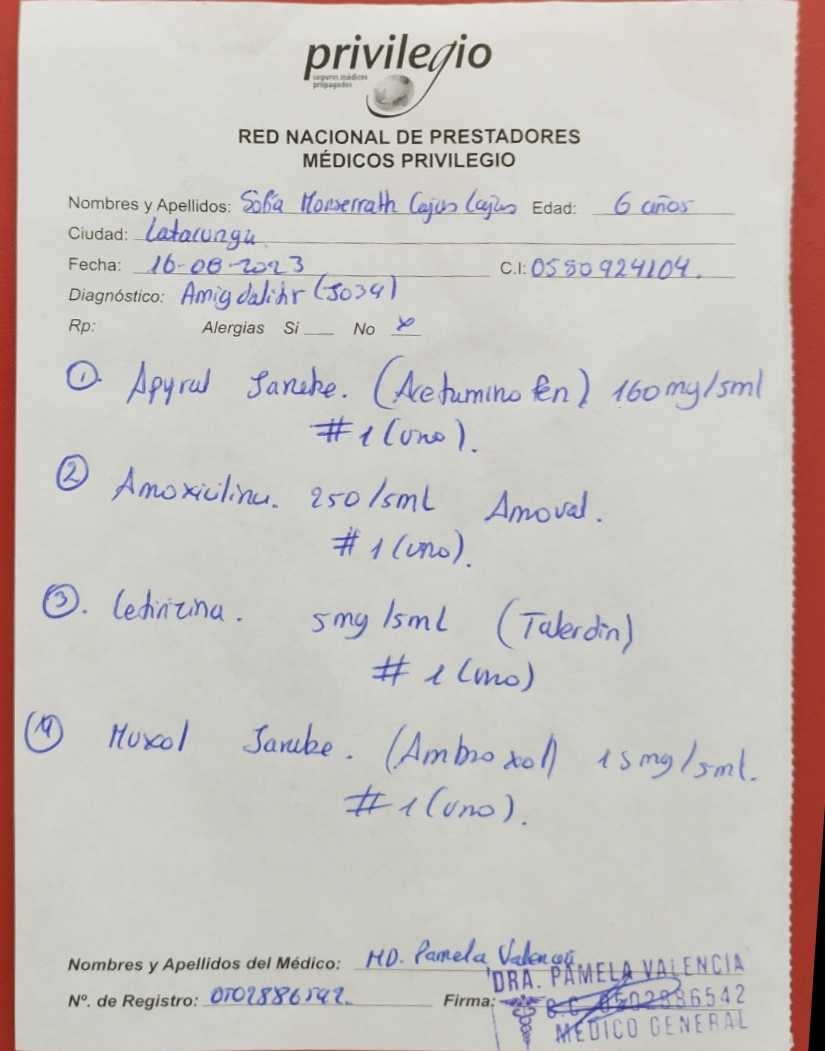 privilegio
seguros médicos
prepagados
RED NACIONAL DE PRESTADORES
MÉDICOS PRIVILEGIO
Nombres y Apellidos: Sofía Monserrath Cajas Cajas Edad: 6 años
Ciudad: Latacunga
Fecha: 16-08-2023 C.I: 0550924104.
Diagnóstico: Amigdalitis (J039)
Rp: Alergias Si ___ No x
① Apyral Jarabe. (Acetaminofen) 160mg/5ml
# 1 (uno).
② Amoxicilina. 250/5ml Amoval.
# 1 (uno).
③. Cetirizina. 5mg/5ml (Talerdin)
# 1 (uno)
④ Muxol Jarabe. (Ambroxol) 15mg/5ml.
# 1 (uno).
Nombres y Apellidos del Médico: MD. Pamela Valencia
Nº. de Registro: 0502886542. Firma:
DRA. PAMELA VALENCIA
0502886542
MÉDICO GENERAL